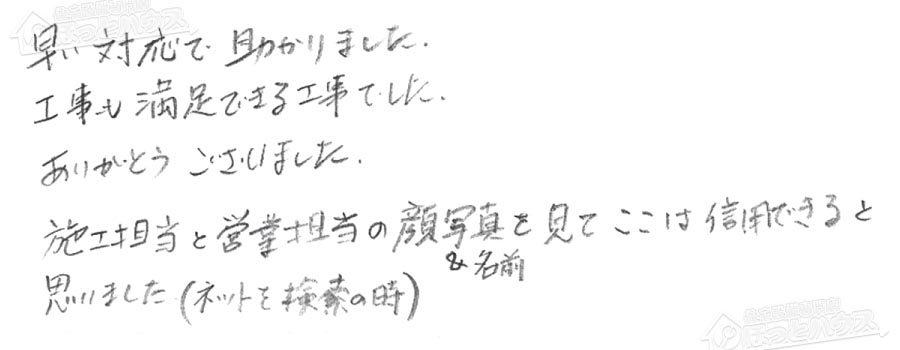 早い対応で助かりました.
工事も満足できる工事でした.
ありがとうございました.
施工担当と営業担当の顔写真を見てここは信用できると
&名前
思いました(ネットを検索の時)
ほっとハウス
ほっとハウス